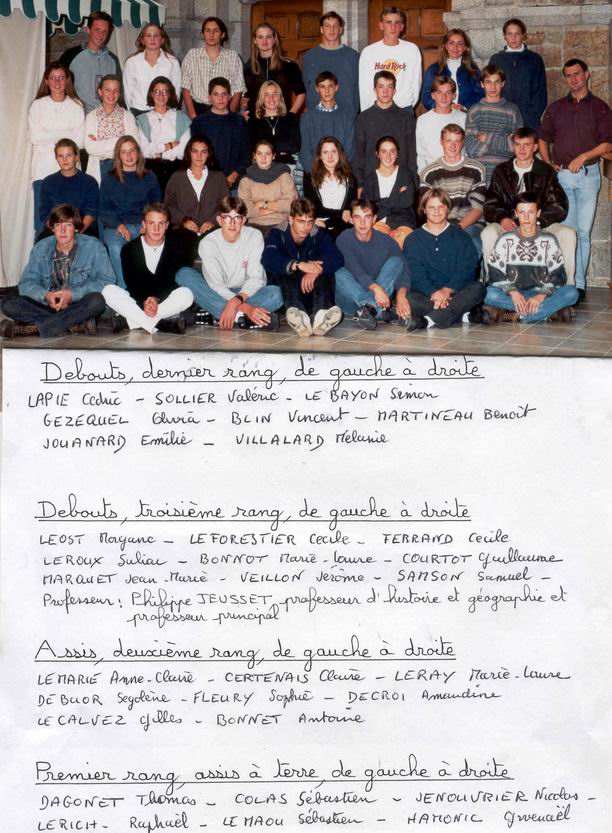 Hard Rock
Debouts, dernier rang, de gauche à droite
LAPIE Cédric - SOLLIER Valérie - LE BAYON Simon
GEZEQUEL - BLIN Vincent - MARTINEAU Benoît
JOUANARD Emilie - VILLALARD Mélanie
Debouts, troisième rang, de gauche à droite
LEOST Morgane - LE FORESTIER Cécile - FERRAND Cécile
LEROUX Suliac - BONNOT Marie-Laure - COURTOT Guillaume
MARQUET Jean-Marie - VEILLON Jérôme - SAMSON Samuel -
Professeur : Philippe JEUSSET, professeur d'histoire et géographie et
professeur principal
Assis, deuxième rang, de gauche à droite
LEMARIE Anne-Claire - CERTENAIS Claire - LERAY Marie-Laure
DE BUOR Segolène - FLEURY Sophie - DECROI Amandine
LE CALVEZ Gilles - BONNET Antoine
Premier rang, assis à terre, de gauche à droite
DAGONET Thomas - COLAS Sébastien - JENOUVRIER Nicolas -
LERICH - Raphaël - LE MAOU Sébastien - HAMONIC Gwenaël